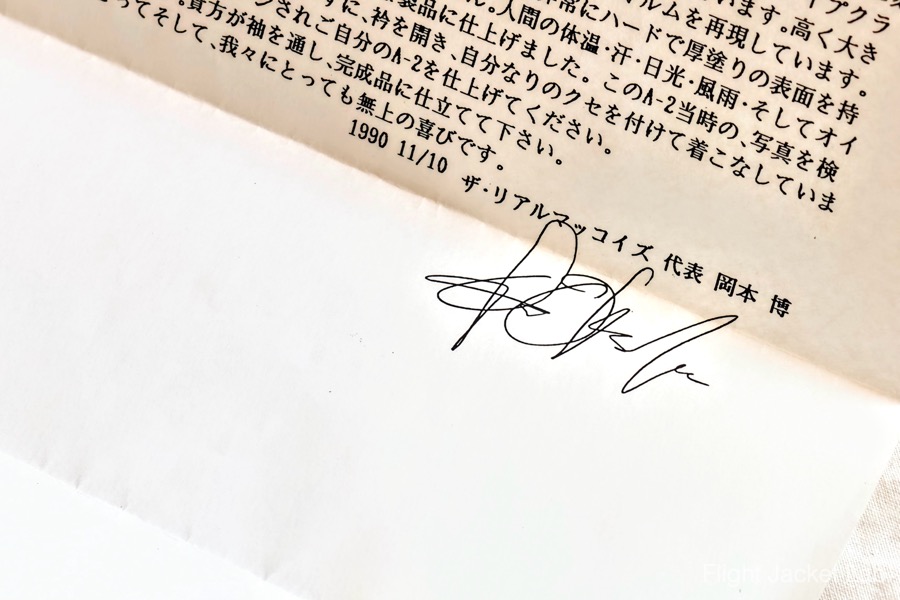 イプクラ
います。高く大き
ルムを再現しています。
非常にハードで厚塗りの表面を持
ん。人間の体温・汗・日光・風雨・そしてオイ
製品に仕上げました。このA-2当時の、写真を検
ずに、衿を開き、自分なりのクセを付けて着こなしていま
ンされご自分のA-2を仕上げてください。
。貴方が袖を通し、完成品に仕立てて下さい。
とってそして、我々にとっても無上の喜びです。
1990 11/10
ザ・リアルマッコイズ 代表 岡本 博
Flight Jacket